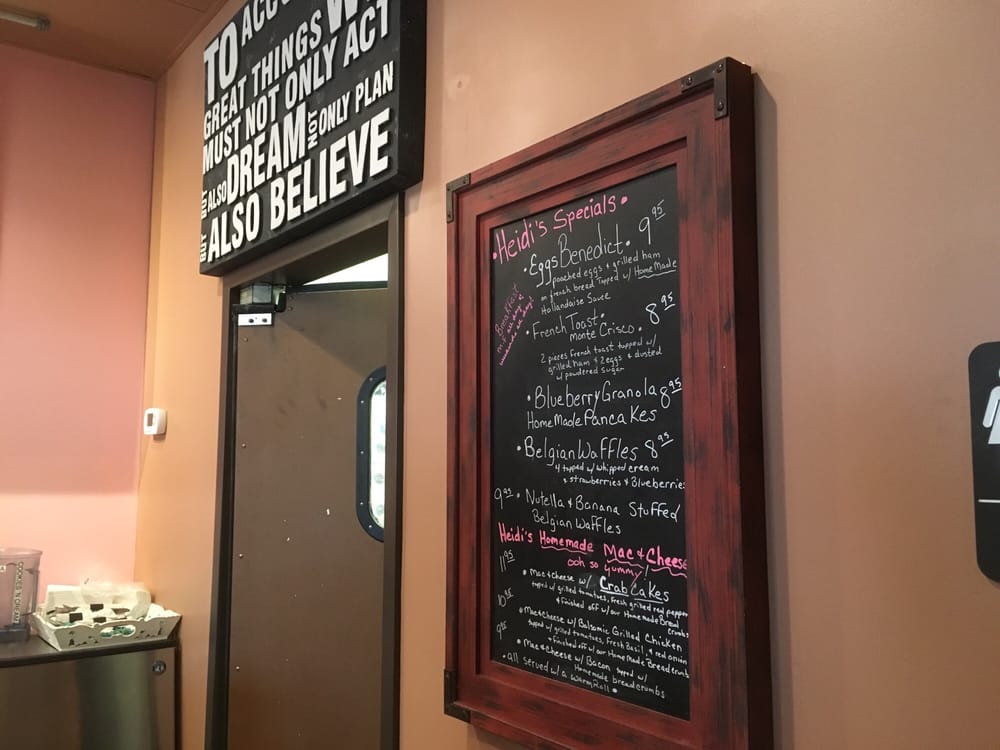 TO ACCO
GREAT THINGS W
MUST NOT ONLY ACT
BUT ALSO DREAM NOT ONLY PLAN
BUT ALSO BELIEVE
• Heidi's Specials •
• Eggs Benedict • 9 95
poached eggs & grilled ham
on french bread Topped w/ HomeMade
Hollandaise Sauce
Breakfast
• French Toast •
Monte Crisco • 8 95
2 pieces French toast topped w/
grilled ham & 2 eggs & dusted
w/ powdered sugar
• Blueberry Granola 8 95
HomeMade Pancakes
• Belgian Waffles 8 95
4 topped w/ whipped cream
& strawberries & Blueberries
9 95 • Nutella & Banana Stuffed
Belgian Waffles
Heidi's Homemade Mac & Cheese
ooh so yummy!
11 95
• Mac & Cheese w/ Crab Cakes
topped w/ grilled tomatoes, fresh grilled red pepper
& finished off w/ our HomeMade Bread
crumbs
10 95
• Mac & Cheese w/ Balsamic Grilled Chicken
topped w/ grilled tomatoes, Fresh Basil, & red onion
& finished off w/ our HomeMade Breadcrumb
9 95
• Mac & Cheese w/ Bacon topped w/
Homemade breadcrumbs
• all served w/ a Warm Roll •
COOKIES 'N CREAM